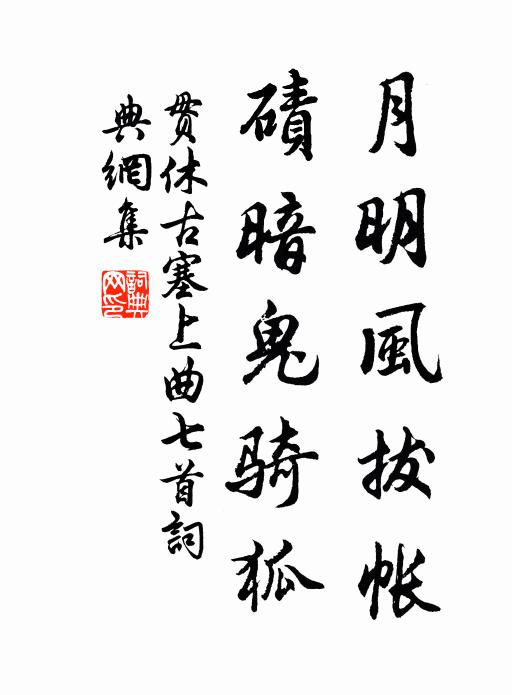 月明風拔帳
磧暗鬼騎狐
貫休古塞上曲七首詞
典網集
詞典
网印